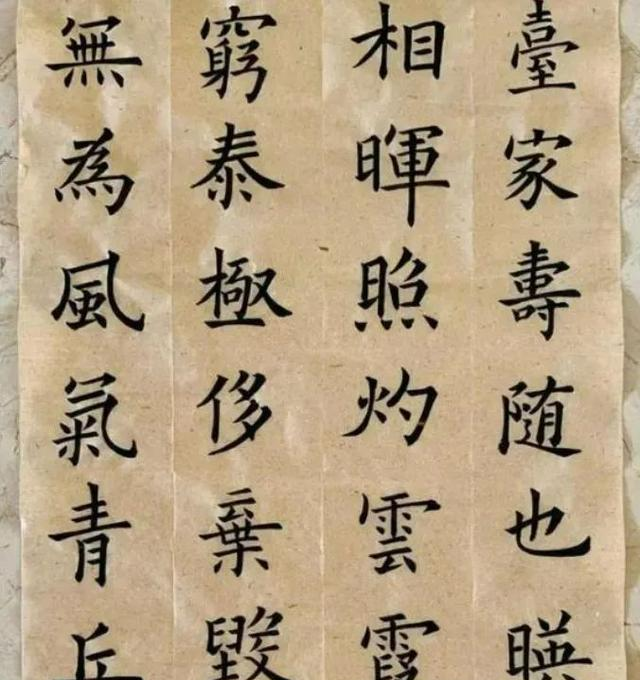 臺家壽随也暎
相暉照灼雲霞
窮泰極侈棄毀
無為風氣青